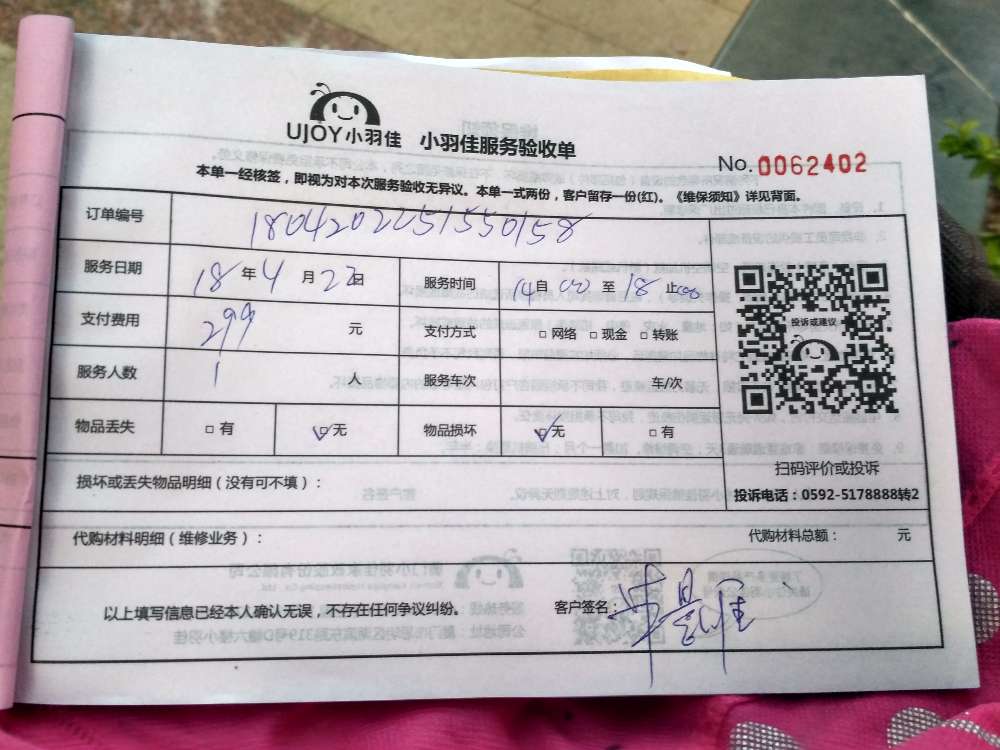 UJOY小羽佳 小羽佳服务验收单
No.0062402
本单一经核签，即视为对本次服务验收无异议。本单一式两份，客户留存一份(红)。《维保须知》详见背面。
订单编号 1804202251550158
服务日期 18年4月22日 服务时间 14自00至18止00
支付费用 299元 支付方式 □网络 □现金 □转账
投诉或建议
服务人数 1人 服务车次 车/次
物品丢失 □有 ☑无 物品损坏 ☑无 □有
扫码评价或投诉
损坏或丢失物品明细（没有可不填）：
投诉电话：0592-5178888转2
代购材料明细（维修业务）： 代购材料总额： 元
以上填写信息已经本人确认无误，不存在任何争议纠纷。 客户签名：